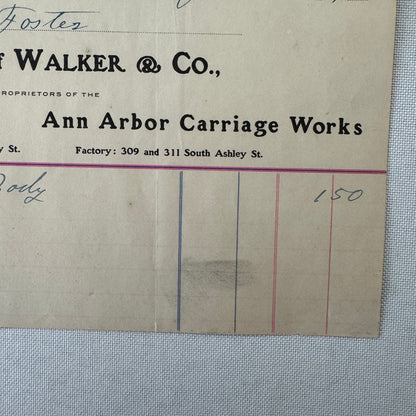 Foster
f WALKER & Co.,
ROPRIETORS OF THE
Ann Arbor Carriage Works
y St. Factory: 309 and 311 South Ashley St.
Body 1 50